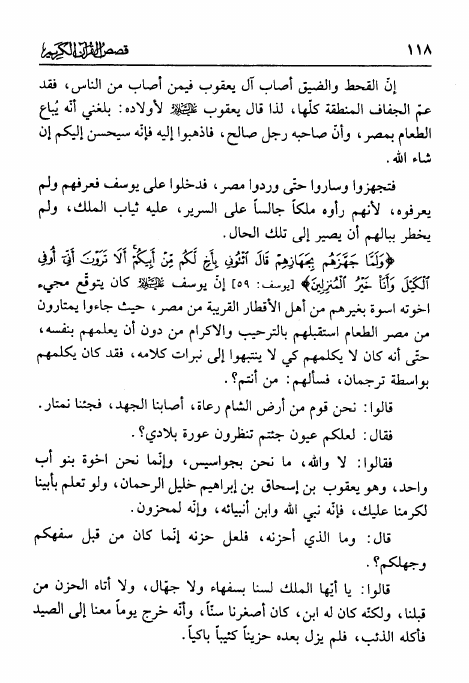 ١١٨ قصص القرآن الكريم
إنّ القحط والضيق أصاب آل يعقوب فيمن أصاب من الناس، فقد
عمّ الجفاف المنطقة كلّها، لذا قال يعقوب عليه السلام لأولاده: بلغني أنّه يُباع
الطعام بمصر، وأنّ صاحبه رجل صالح، فاذهبوا إليه فإنّه سيحسن إليكم إن
شاء الله.
فتجهزوا وساروا حتّى وردوا مصر، فدخلوا على يوسف فعرفهم ولم
يعرفوه، لأنهم رأوه ملكاً جالساً على السرير، عليه ثياب الملك، ولم
يخطر ببالهم أن يصير إلى تلك الحال.
﴿وَلَمَّا جَهَّزَهُم بِجَهَازِهِمْ قَالَ ائْتُونِي بِأَخٍ لَّكُم مِّنْ أَبِيكُمْ أَلَا تَرَوْنَ أَنِّي أُوفِي
الْكَيْلَ وَأَنَا خَيْرُ الْمُنزِلِينَ﴾ [يوسف: ٥٩] إنّ يوسف عليه السلام كان يتوقّع مجيء
اخوته اسوة بغيرهم من أهل الأقطار القريبة من مصر، حيث جاءوا يمتارون
من مصر الطعام استقبلهم بالترحيب والاكرام من دون أن يعلمهم بنفسه،
حتّى أنه كان لا يكلمهم كي لا ينتبهوا إلى نبرات كلامه، فقد كان يكلمهم
بواسطة ترجمان، فسألهم: من أنتم؟.
قالوا: نحن قوم من أرض الشام رعاة، أصابنا الجهد، فجئنا نمتار.
فقال: لعلكم عيون جئتم تنظرون عورة بلادي؟.
فقالوا: لا والله، ما نحن بجواسيس، وإنّما نحن اخوة بنو أب
واحد، وهو يعقوب بن إسحاق بن إبراهيم خليل الرحمان، ولو تعلم بأبينا
لكرمنا عليك، فإنّه نبي الله وابن أنبيائه، وإنّه لمحزون.
قال: وما الذي أحزنه، فلعل حزنه إنّما كان من قبل سفهكم
وجهلكم؟.
قالوا: يا أيّها الملك لسنا بسفهاء ولا جهّال، ولا أتاه الحزن من
قبلنا، ولكنّه كان له ابن، كان أصغرنا سنّاً، وأنّه خرج يوماً معنا إلى الصيد
فأكله الذئب، فلم يزل بعده حزيناً كئيباً باكياً.